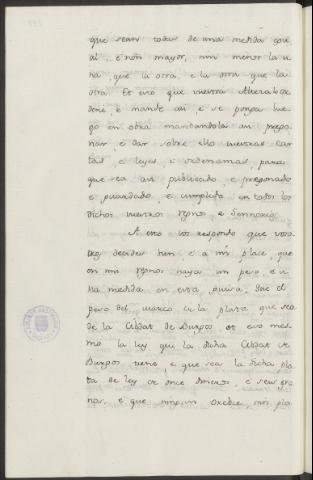 que sean todas de una medida egu
al, e non mayor, nin menor la u
na, que la otra, e la otra que la
otra. Et eso que vuestra Alteza lo or
dene, e mande asi e se ponga lue
go en obra mandandola asi prego
nar, e dar sobre ello vuestras car
tas, e leyes, e ordenanzas, para
que sea asi publicado, e pregonado
e guardado, e complido en todos los
dichos vuestros regnos, e Sennorios.
A esto vos respondo que voso
tros decides bien, e a mi place, que
en mis regnos haya un peso, e u
na medida en esta guisa. Que el
peso del marco de la plata que sea
de la Cibdat de Burgos et eso mes
mo la ley que la dicha Cibdat de
Burgos tiene, e que sea la dicha pla
ta de ley de once dineros, e seis gra
nos, e que ningun orebce, nin pla